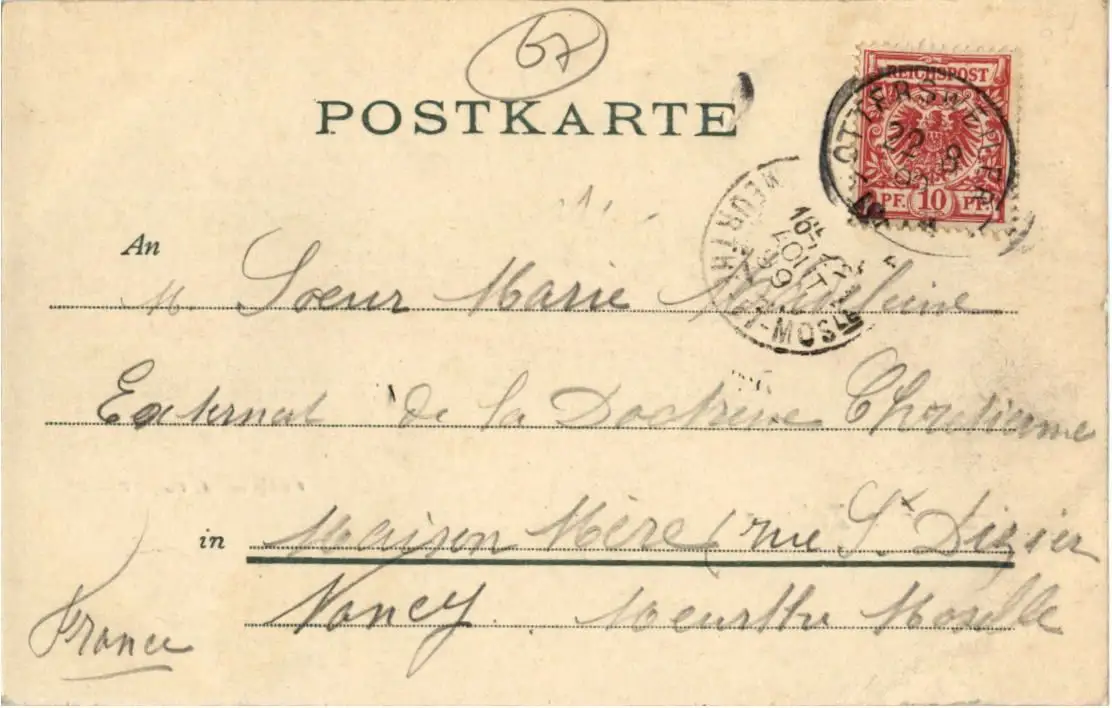 67
POSTKARTE
REICHSPOST
OTTERSWEILER
22 8
99
PF. 10 PF.
MEURTHE-ET-MOSLE
AOUT
99
An
M. Soeur Marie Madeleine
Externat de la Doctrine Chretienne
in Maison Mère (rue St Dizier
Nancy. Meurthe Moselle
France